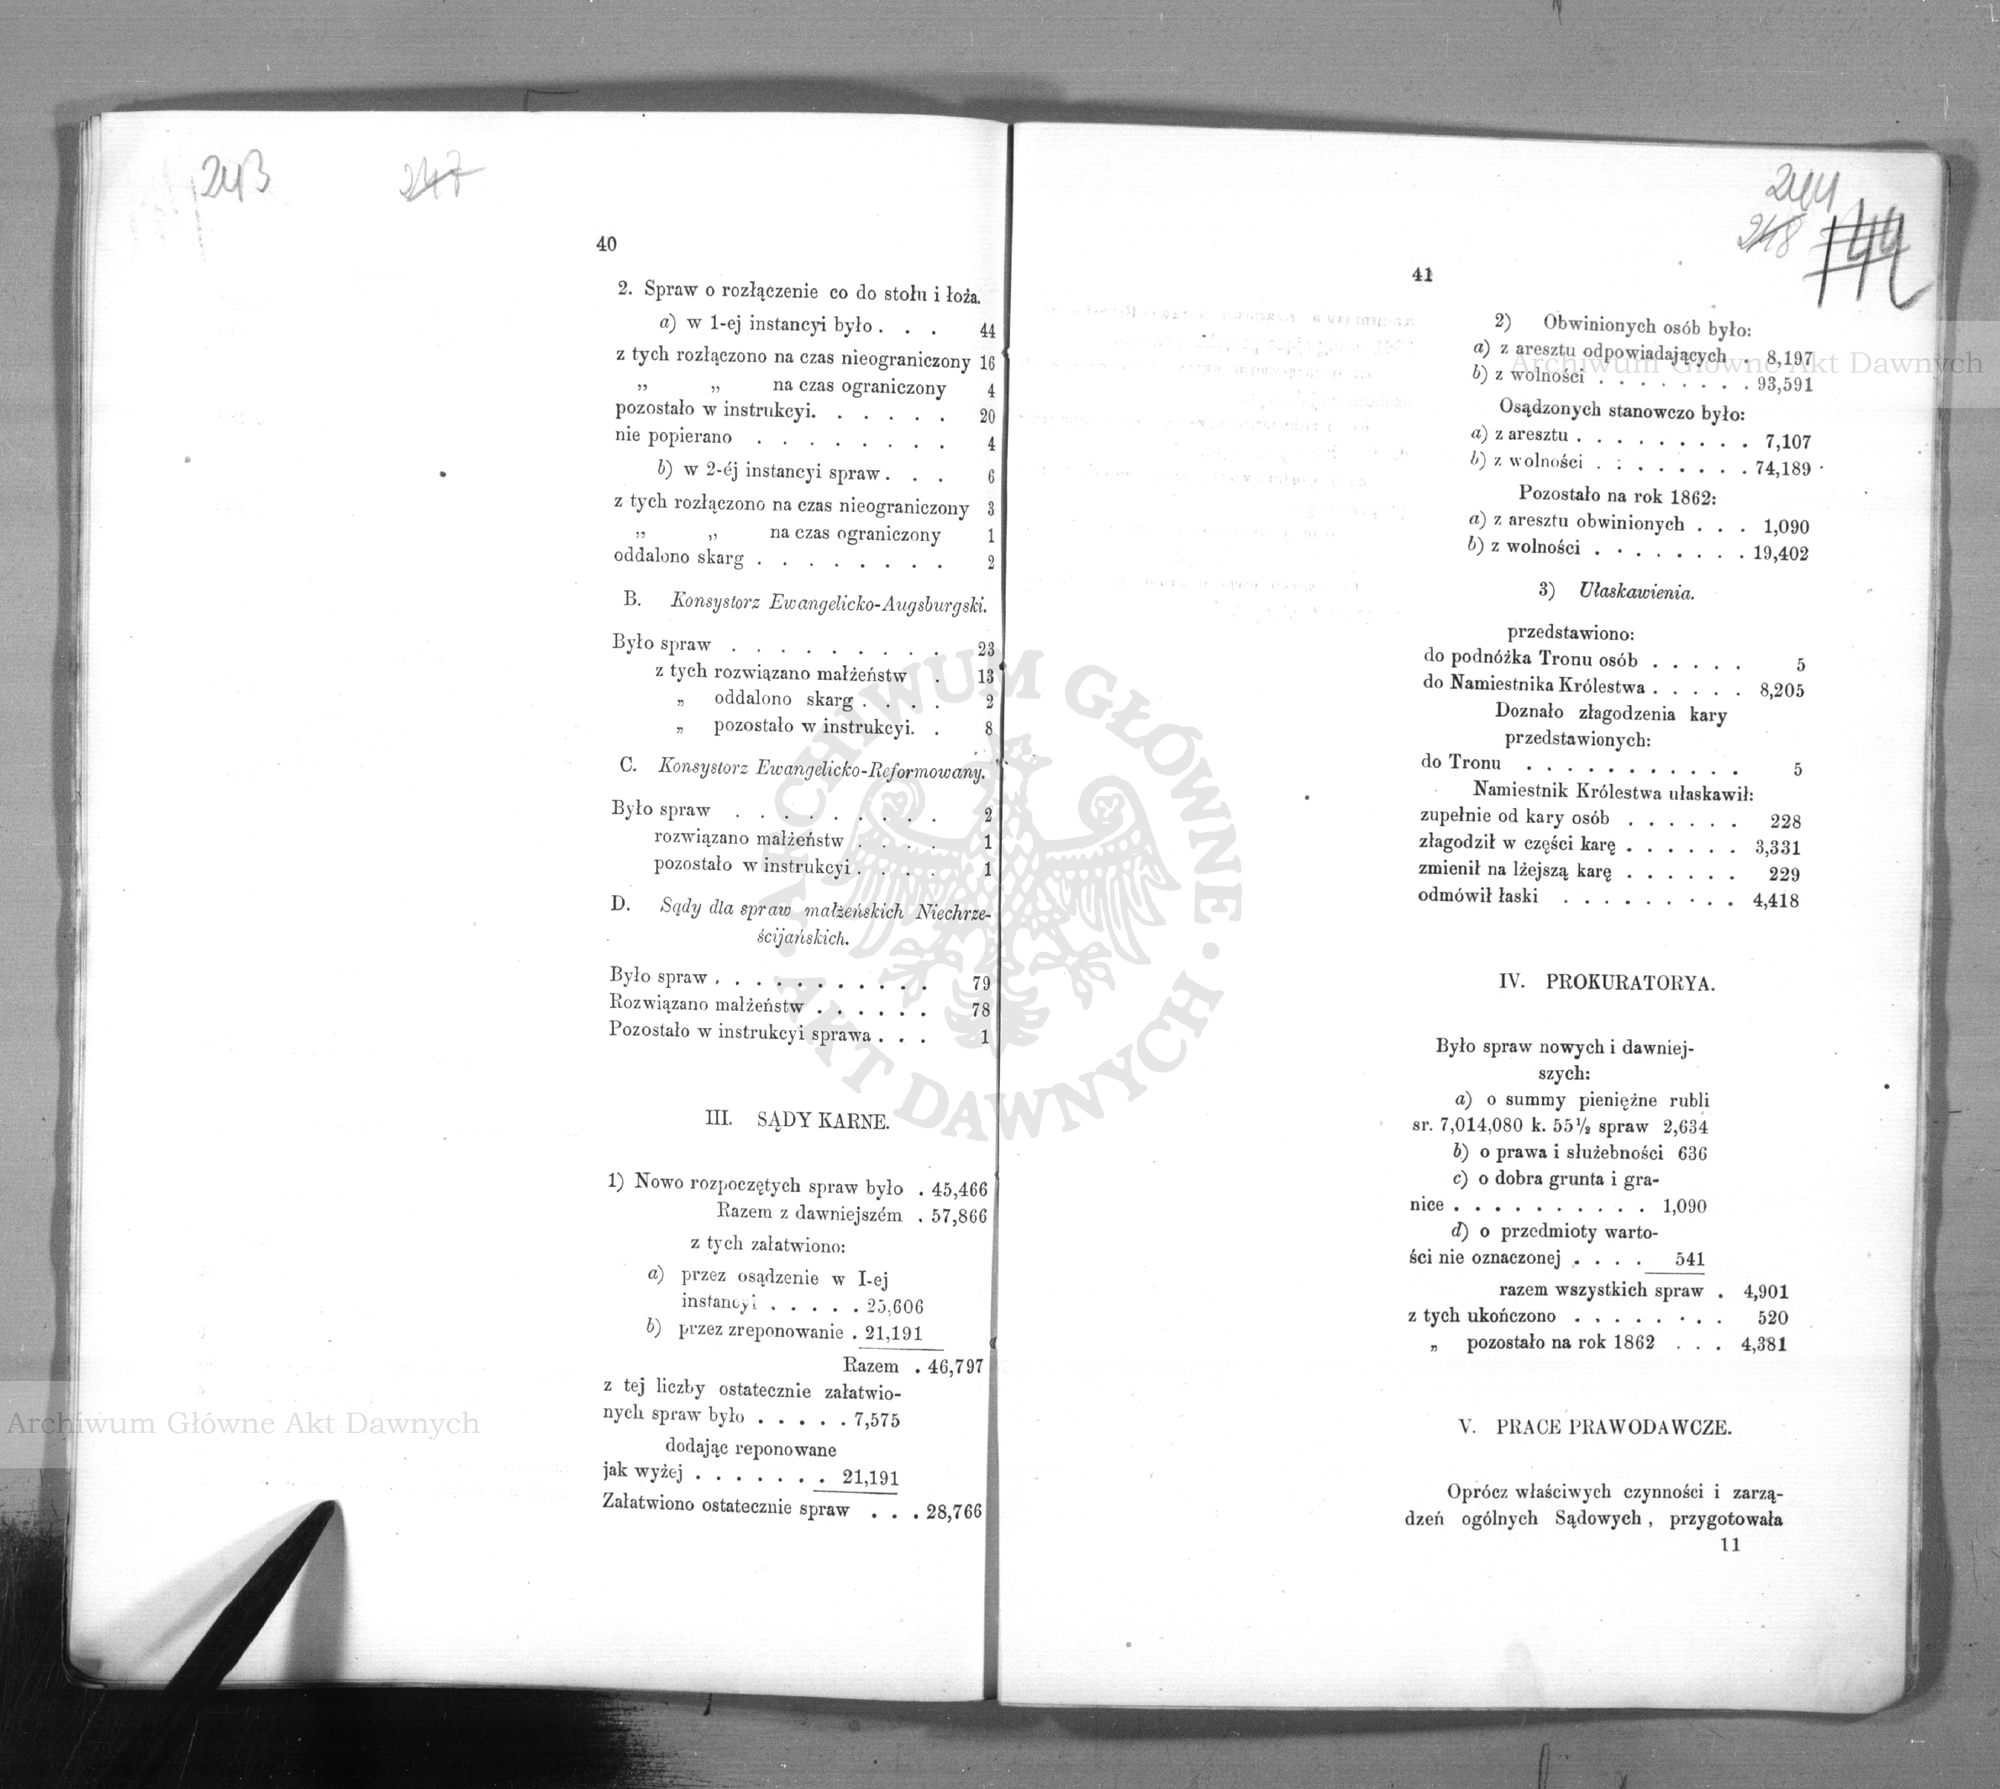 243
247
40
2. Spraw o rozłączenie co do stołu i łoża.
a) w 1-ej instancyi było . . . 44
z tych rozłączono na czas nieograniczony 16
„ „ na czas ograniczony 4
pozostało w instrukcyi. . . . . . 20
nie popierano . . . . . . . . 4
b) w 2-éj instancyi spraw . . . 6
z tych rozłączono na czas nieograniczony 3
„ „ na czas ograniczony 1
oddalono skarg . . . . . . . . 2
B. Konsystorz Ewangelicko-Augsburgski.
Było spraw . . . . . . . . . 23
z tych rozwiązano małżeństw . 13
„ oddalono skarg . . . . 2
„ pozostało w instrukcyi. . 8
C. Konsystorz Ewangelicko-Reformowany.
Było spraw . . . . . . . . . 2
rozwiązano małżeństw . . . . 1
pozostało w instrukcyi . . . . 1
D. Sądy dla spraw małżeńskich Niechrze-
ścijańskich.
Było spraw . . . . . . . . . . 79
Rozwiązano małżeństw . . . . . . 78
Pozostało w instrukcyi sprawa . . . 1
III. SĄDY KARNE.
1) Nowo rozpoczętych spraw było . 45,466
Razem z dawniejszém . 57,866
z tych załatwiono:
a) przez osądzenie w I-ej
instancyi . . . . . 25,606
b) przez zreponowanie . 21,191
Razem . 46,797
z tej liczby ostatecznie załatwio-
nych spraw było . . . . . 7,575
dodając reponowane
jak wyżej . . . . . . . 21,191
Załatwiono ostatecznie spraw . . . 28,766
244
248
144
41
2) Obwinionych osób było:
a) z aresztu odpowiadających . 8,197
b) z wolności . . . . . . . . 93,591
Osądzonych stanowczo było:
a) z aresztu . . . . . . . . . 7,107
b) z wolności . . . . . . . . 74,189
Pozostało na rok 1862:
a) z aresztu obwinionych . . . 1,090
b) z wolności . . . . . . . . 19,402
3) Ułaskawienia.
przedstawiono:
do podnóżka Tronu osób . . . . . 5
do Namiestnika Królestwa . . . . . 8,205
Doznało złagodzenia kary
przedstawionych:
do Tronu . . . . . . . . . . . 5
Namiestnik Królestwa ułaskawił:
zupełnie od kary osób . . . . . . 228
złagodził w części karę . . . . . . 3,331
zmienił na lżejszą karę . . . . . . 229
odmówił łaski . . . . . . . . . 4,418
IV. PROKURATORYA.
Było spraw nowych i dawniej-
szych:
a) o summy pieniężne rubli
sr. 7,014,080 k. 55½ spraw 2,634
b) o prawa i służebności 636
c) o dobra grunta i gra-
nice . . . . . . . . . . 1,090
d) o przedmioty warto-
ści nie oznaczonej . . . . 541
razem wszystkich spraw . 4,901
z tych ukończono . . . . . . . . 520
„ pozostało na rok 1862 . . . 4,381
V. PRACE PRAWODAWCZE.
Oprócz właściwych czynności i zarzą-
dzeń ogólnych Sądowych, przygotowała
11
Archiwum Główne Akt Dawnych
Archiwum Główne Akt Dawnych
ARCHIWUM GŁÓWNE
· AKT DAWNYCH ·